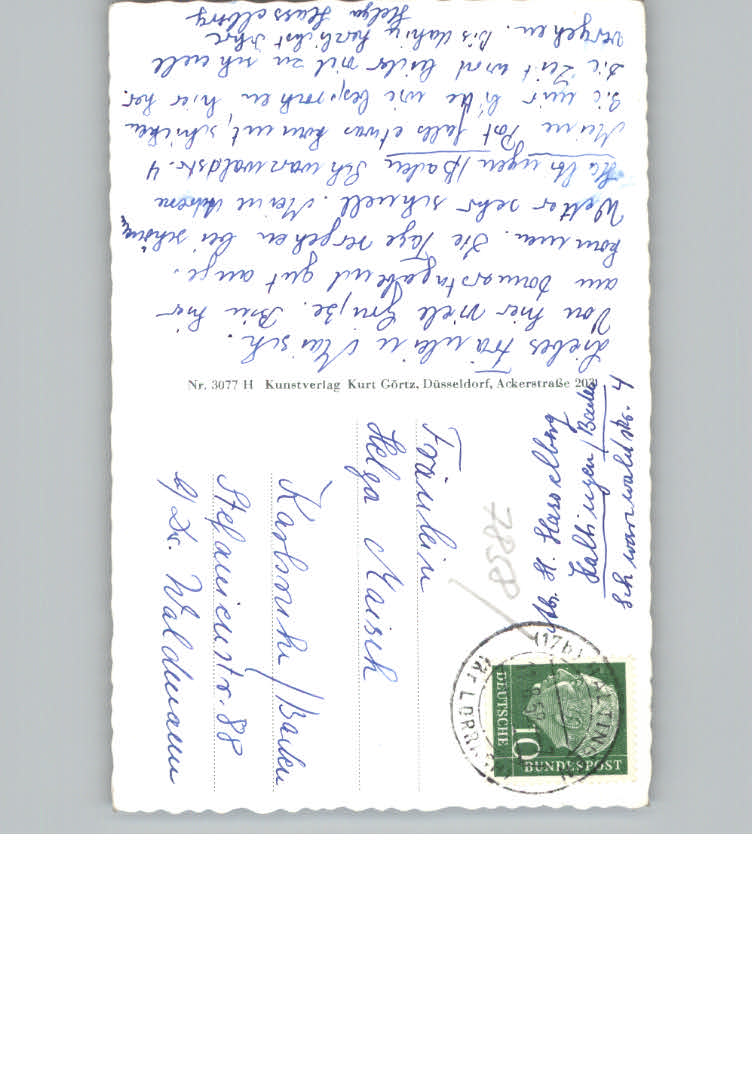 Liebes Fräulein Maisch.
Von hier viele Grüße. Bin hier
am Donnerstagabend gut ange-
kommen. Die Tage vergehen bei schönem
Wetter sehr schnell. Meine Adresse
Haltingen/Baden Schwarzwaldstr. 4
Meine Post falls etwas kommt, schicken
Sie mir bitte wie besprochen hier her.
Die Zeit wird leider viel zu schnell
vergehen. Bis dahin herzlichst Ihre
Helga Hasselberg
Nr. 3077 H Kunstverlag Kurt Görtz, Düsseldorf, Ackerstraße 203
Abs. H. Hasselberg
Haltingen/Baden
Schwarzwaldstr. 4
7858
(17b) HALTINGEN
(KR LÖRRACH)
DEUTSCHE
10
BUNDESPOST
Fräulein
Helga Maisch
Karlsruhe/Baden
Stefanienstr. 88
b/Dr. Waldmann